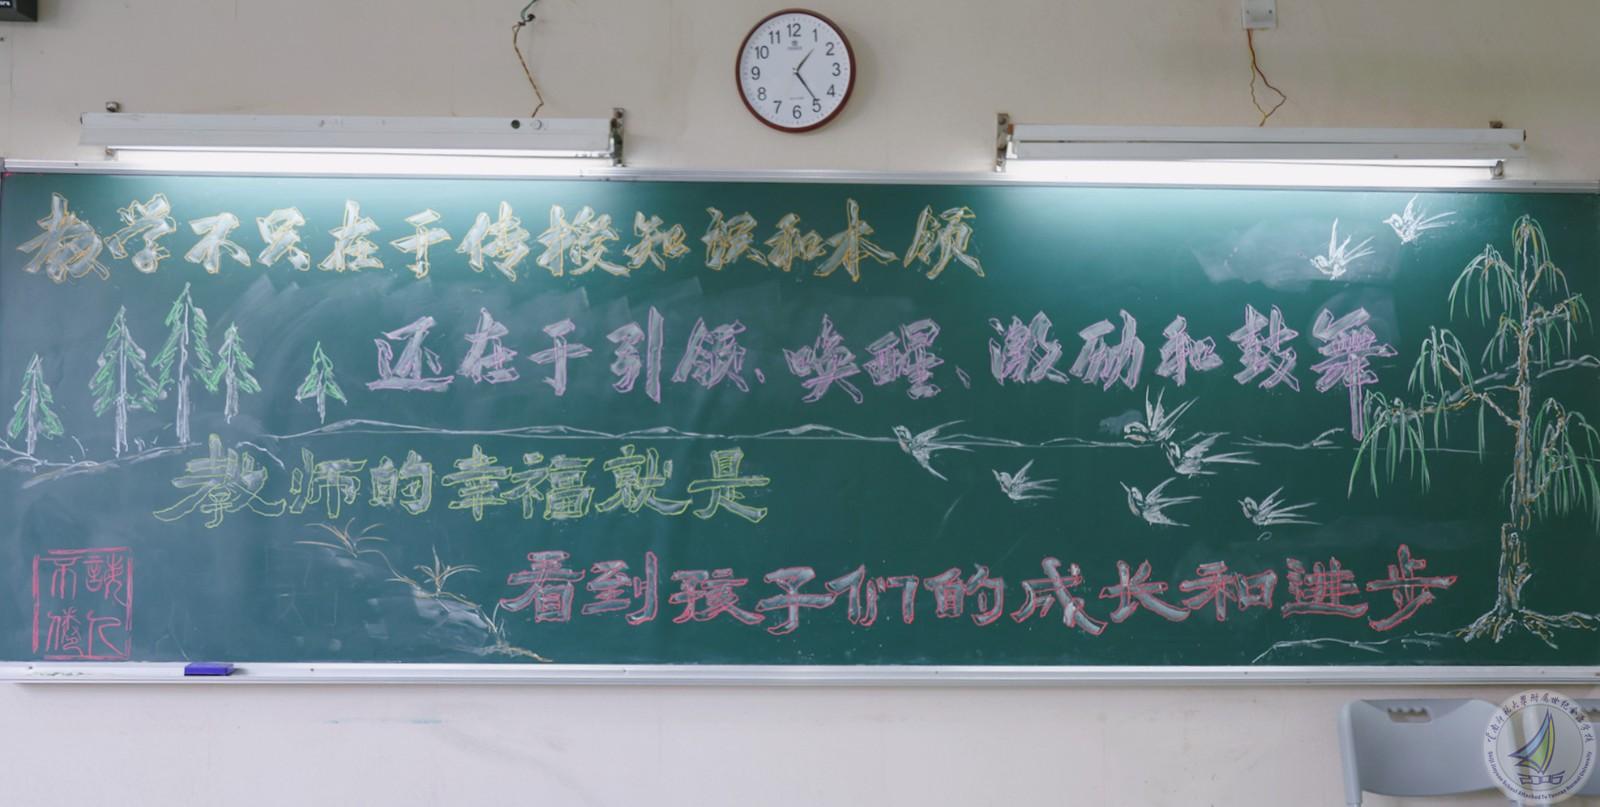 12
1
2
3
4
5
6
7
8
9
10
11
教学不只在于传授知识和本领
还在于引领、唤醒、激励和鼓舞
教师的幸福就是
看到孩子们的成长和进步
诲人
不倦
云南师范大学附属世纪金源学校
Shiji Jinyuan School Attached To Yunnan Normal University